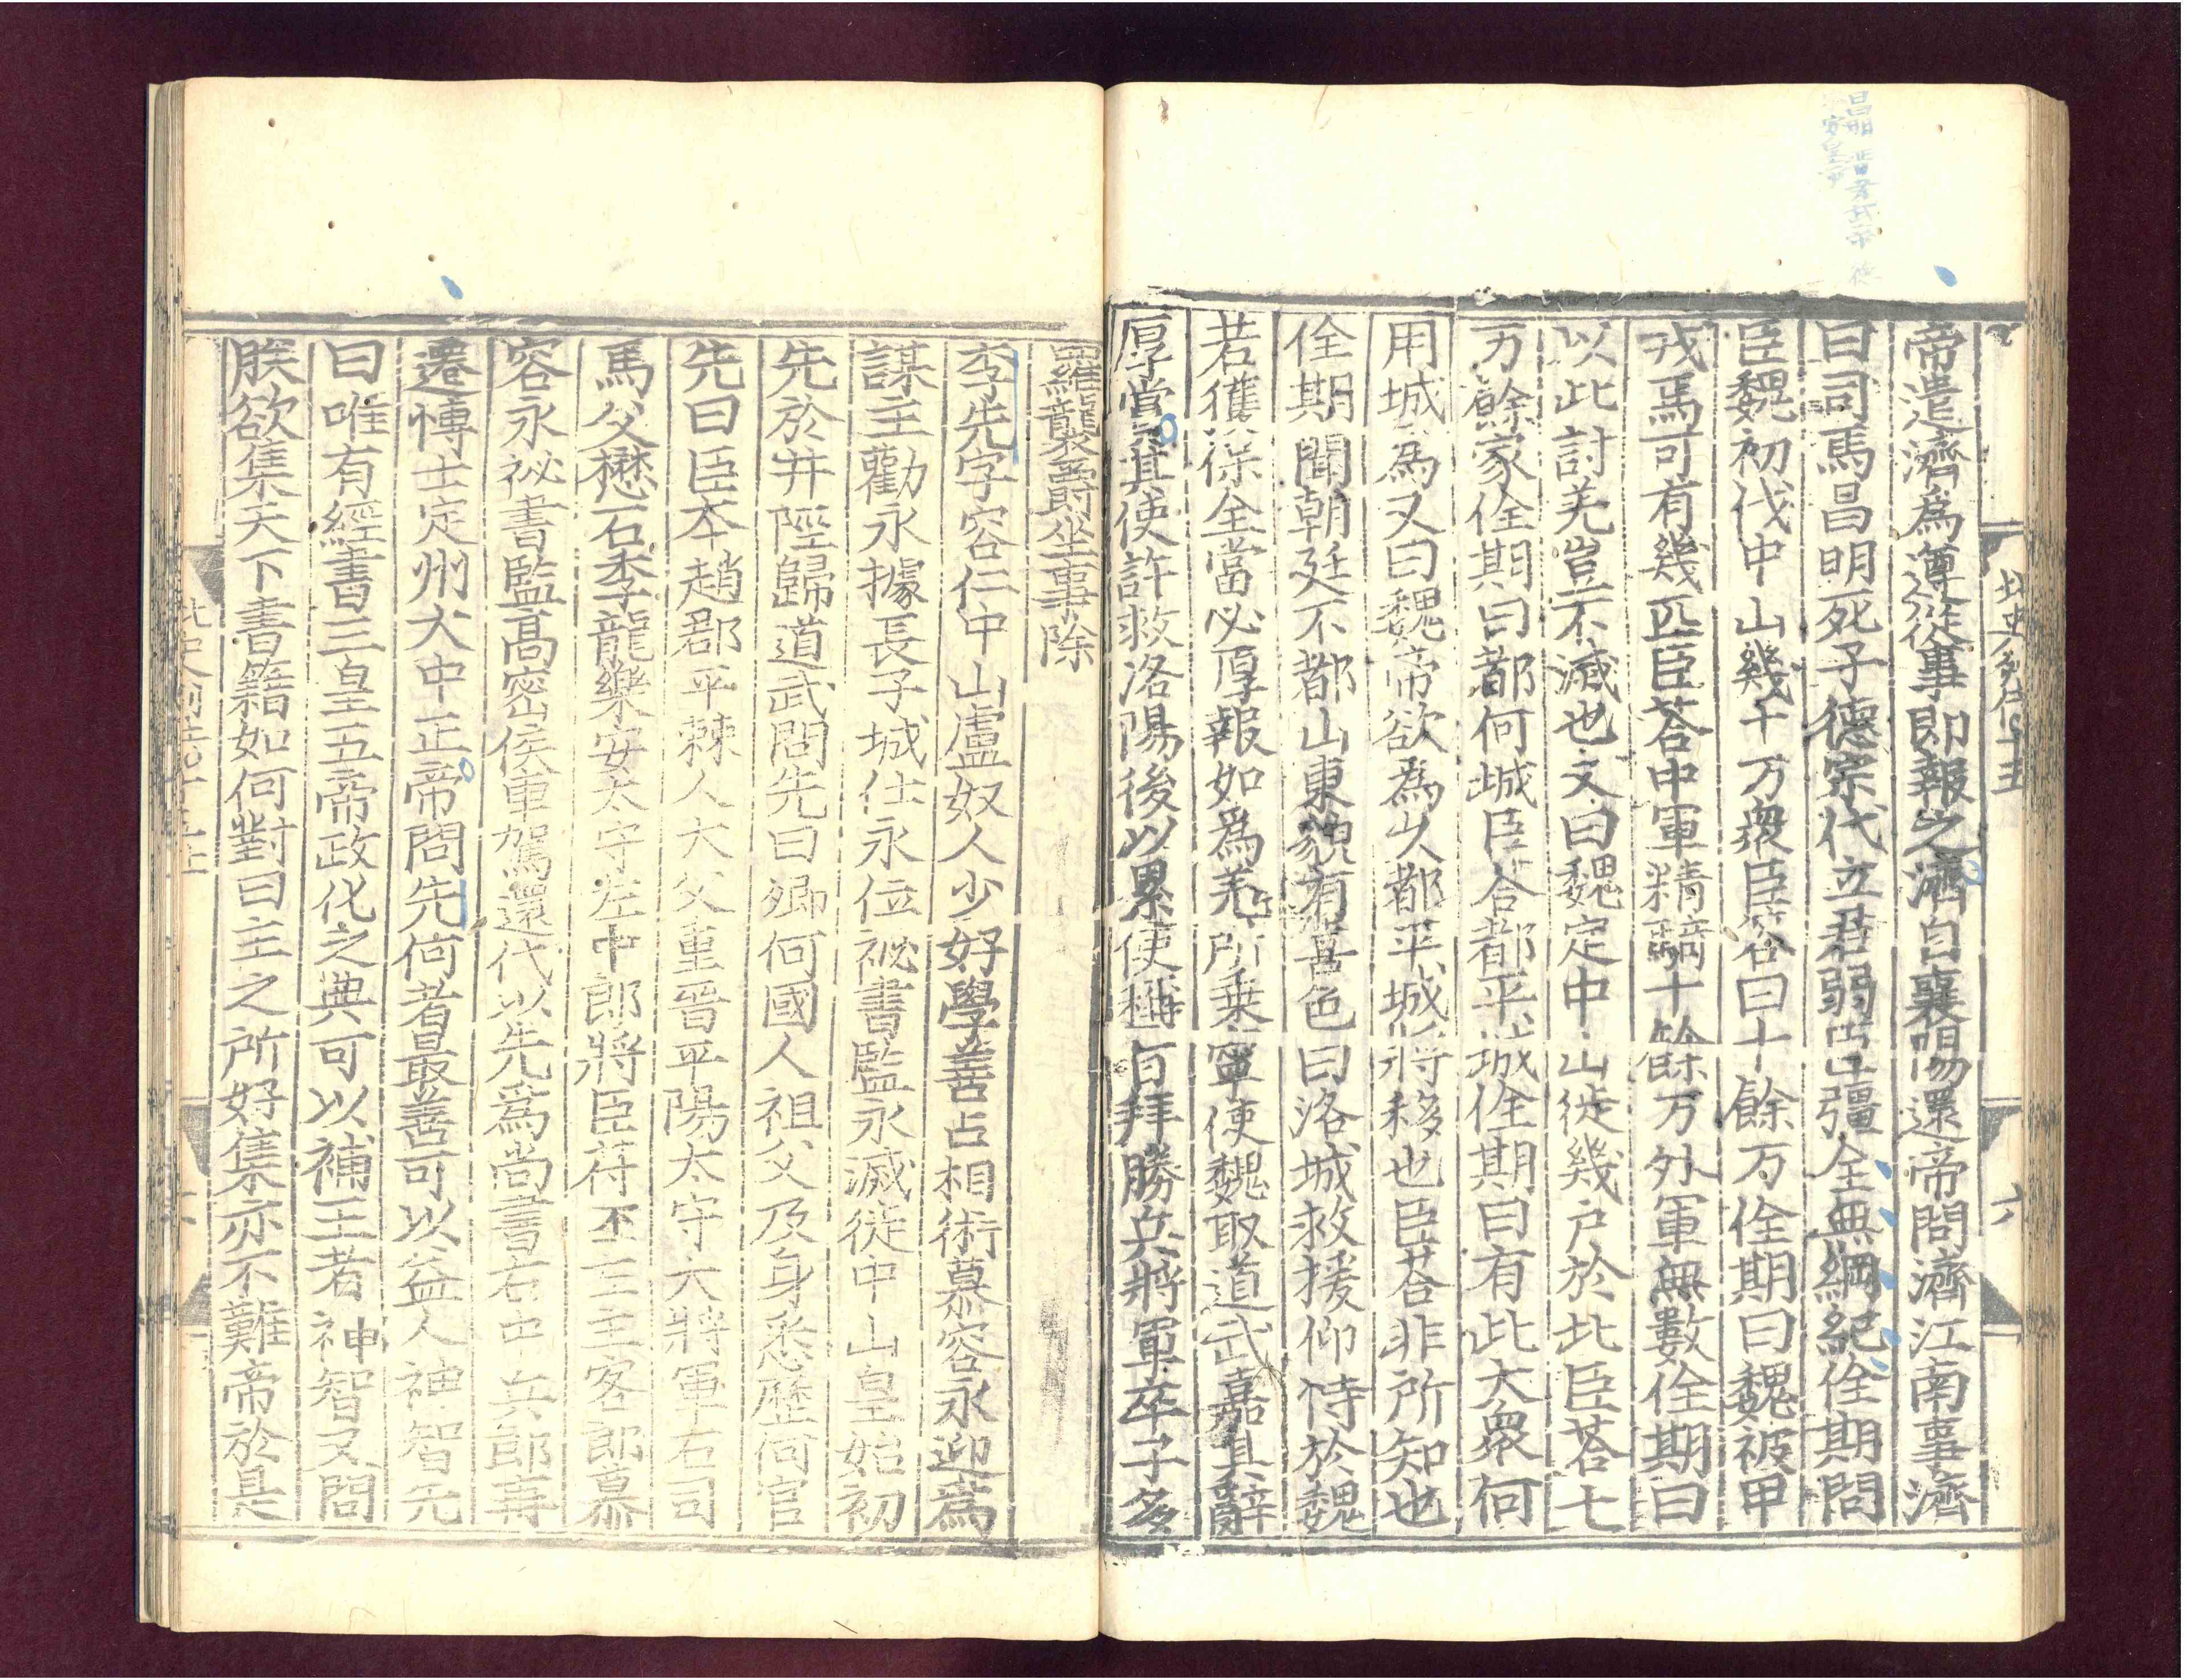 帝遣濟爲遵從事即報之濟自襄陽還帝問濟江南事濟
曰司馬昌明死子德宗代立君弱臣彊全無綱紀佺期問
臣魏初伐中山幾十万衆臣答曰十餘万佺期曰魏被甲
戎馬可有幾匹臣荅中軍精騎十餘万外軍無數佺期曰
以此討羌豈不滅也又曰魏定中山徙幾户於北臣荅七
万餘家佺期曰都何城臣答都平城佺期曰有此大衆何
用城爲又曰魏帝欲爲乆都平城將移也臣荅非所知也
佺期聞朝廷不都山東貌有喜色曰洛城救援仰恃於魏
若獲保全當必厚報如爲羌所乗寧使魏取道武嘉其辭
厚賞其使許救洛陽後以累使稱旨拜勝兵將軍卒子多
羅襲爵坐事除
李先字容仁中山盧奴人少好學善占相術慕容永迎爲
謀主勸永據長子城仕永位祕書監永滅徙中山皇始初
先於井陘歸道武問先曰卿何國人祖父及身悉歷何官
先曰臣本趙郡平棘人大父重晉平陽太守大將軍右司
馬父懋石季龍樂安太守左中郎將臣苻丕主客郎慕
容永祕書監高密侯車駕還代以先爲尚書右中兵郎再
遷博士定州大中正帝問先何者最善可以益人神智先
曰唯有經書三皇五帝政化之典可以補王者神智又問
朕欲集天下書籍如何對曰主之所好集亦不難帝於是
北史列傳十五
六